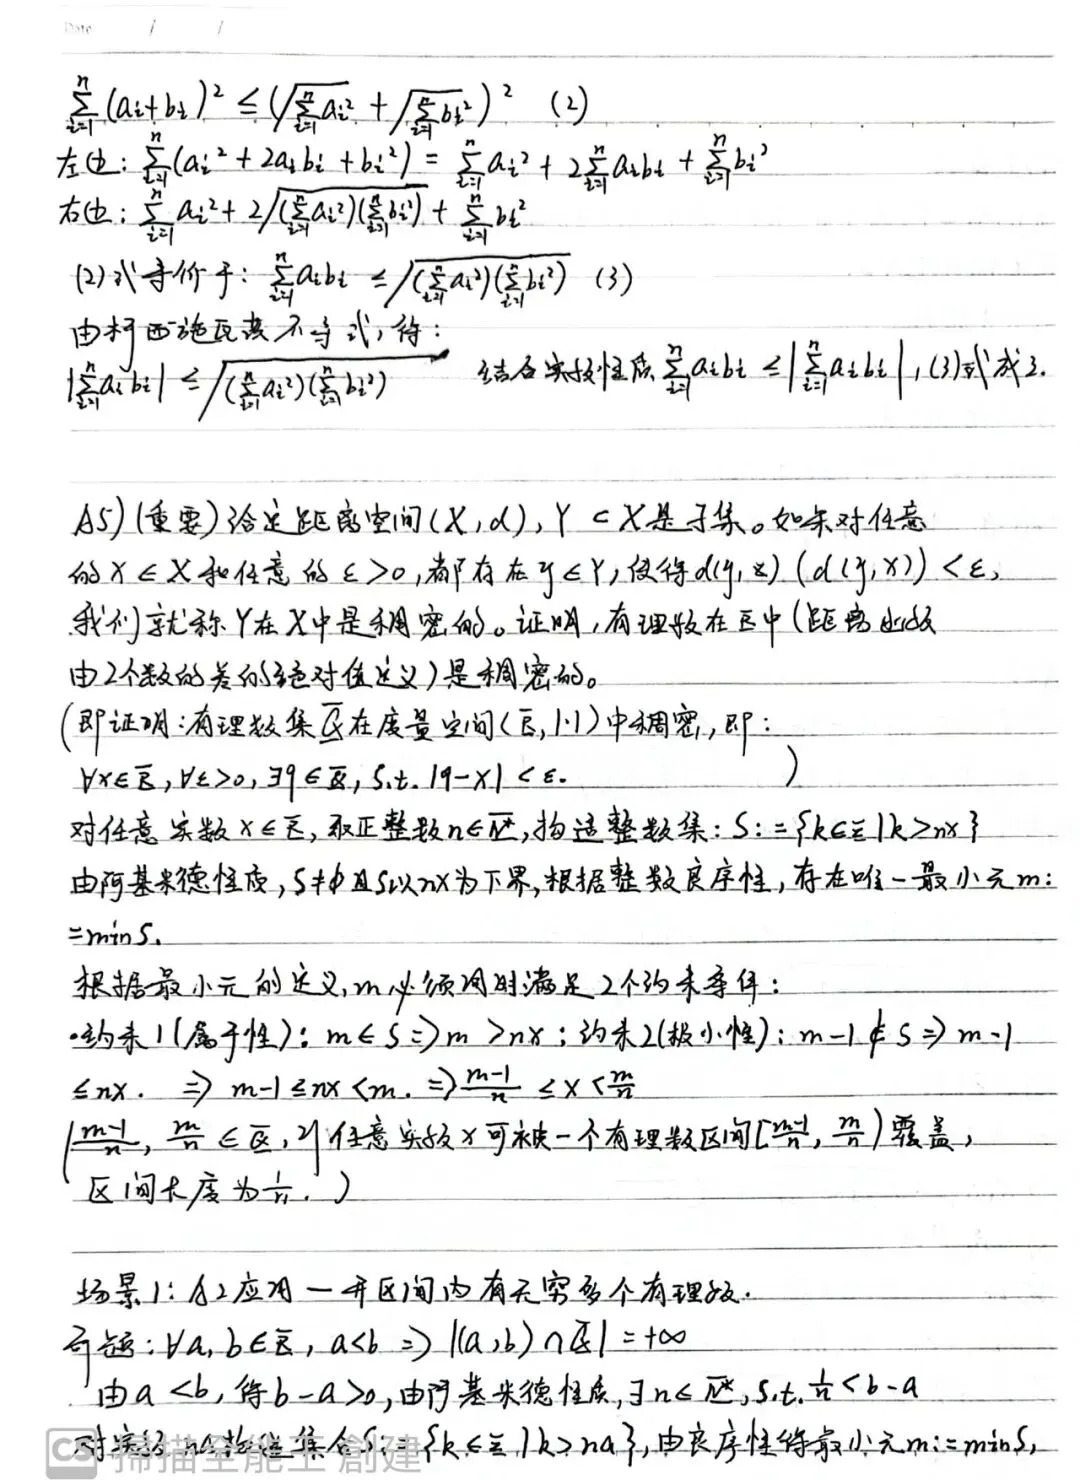 Date / /
$\sum_{i=1}^{n}(a_i+b_i)^2 \le (\sqrt{\sum_{i=1}^{n}a_i^2}+\sqrt{\sum_{i=1}^{n}b_i^2})^2$ (2)
左边: $\sum_{i=1}^{n}(a_i^2+2a_ib_i+b_i^2)=\sum_{i=1}^{n}a_i^2+2\sum_{i=1}^{n}a_ib_i+\sum_{i=1}^{n}b_i^2$
右边: $\sum_{i=1}^{n}a_i^2+2\sqrt{(\sum_{i=1}^{n}a_i^2)(\sum_{i=1}^{n}b_i^2)}+\sum_{i=1}^{n}b_i^2$
(2)式等价于: $\sum_{i=1}^{n}a_ib_i \le \sqrt{(\sum_{i=1}^{n}a_i^2)(\sum_{i=1}^{n}b_i^2)}$ (3)
由柯西施瓦茨不等式,得:
$|\sum_{i=1}^{n}a_ib_i| \le \sqrt{(\sum_{i=1}^{n}a_i^2)(\sum_{i=1}^{n}b_i^2)}$ 结合实数性质$\sum_{i=1}^{n}a_ib_i \le |\sum_{i=1}^{n}a_ib_i|$,(3)式成立.
A5)(重要)给定距离空间(X,d),Y⊂X是子集。如果对任意
的x∈X和任意的ε>0,都存在y∈Y,使得d(y,x)(d(y,x))<ε,
我们就称Y在X中是稠密的。证明,有理数在ℝ中(距离函数
由2个数的差的绝对值定义)是稠密的。
(即证明:有理数集ℚ在度量空间(ℝ,|·|)中稠密,即:
∀x∈ℝ,∀ε>0,∃q∈ℚ,s.t.|q-x|<ε. )
对任意实数x∈ℝ,取正整数n∈ℕ*,构造整数集:S:={k∈ℤ|k>nx}
由阿基米德性质,S≠∅且S以nx为下界,根据整数良序性,存在唯一最小元m:
=minS.
根据最小元的定义,m必须同时满足2个约束条件:
·约束1(属于性):m∈S⇒m>nx;约束2(极小性):m-1∉S⇒m-1
≤nx. ⇒ m-1≤nx<m. ⇒$\frac{m-1}{n}$≤x<$\frac{m}{n}$
($\frac{m-1}{n}$,$\frac{m}{n}$∈ℚ,则任意实数x可被一个有理数区间[$\frac{m-1}{n}$,$\frac{m}{n}$)覆盖,
区间长度为$\frac{1}{n}$.)
场景1:A2应用一开区间内有无穷多个有理数.
命题:∀a,b∈ℝ,a<b⇒|(a,b)∩ℚ|=+∞
由a<b,得b-a>0,由阿基米德性质,∃n∈ℕ*,s.t.$\frac{1}{n}$<b-a
对实数na构造集合S:={k∈ℤ|k>na},由良序性得最小元m:=minS,
CS 掃描全能王 創建